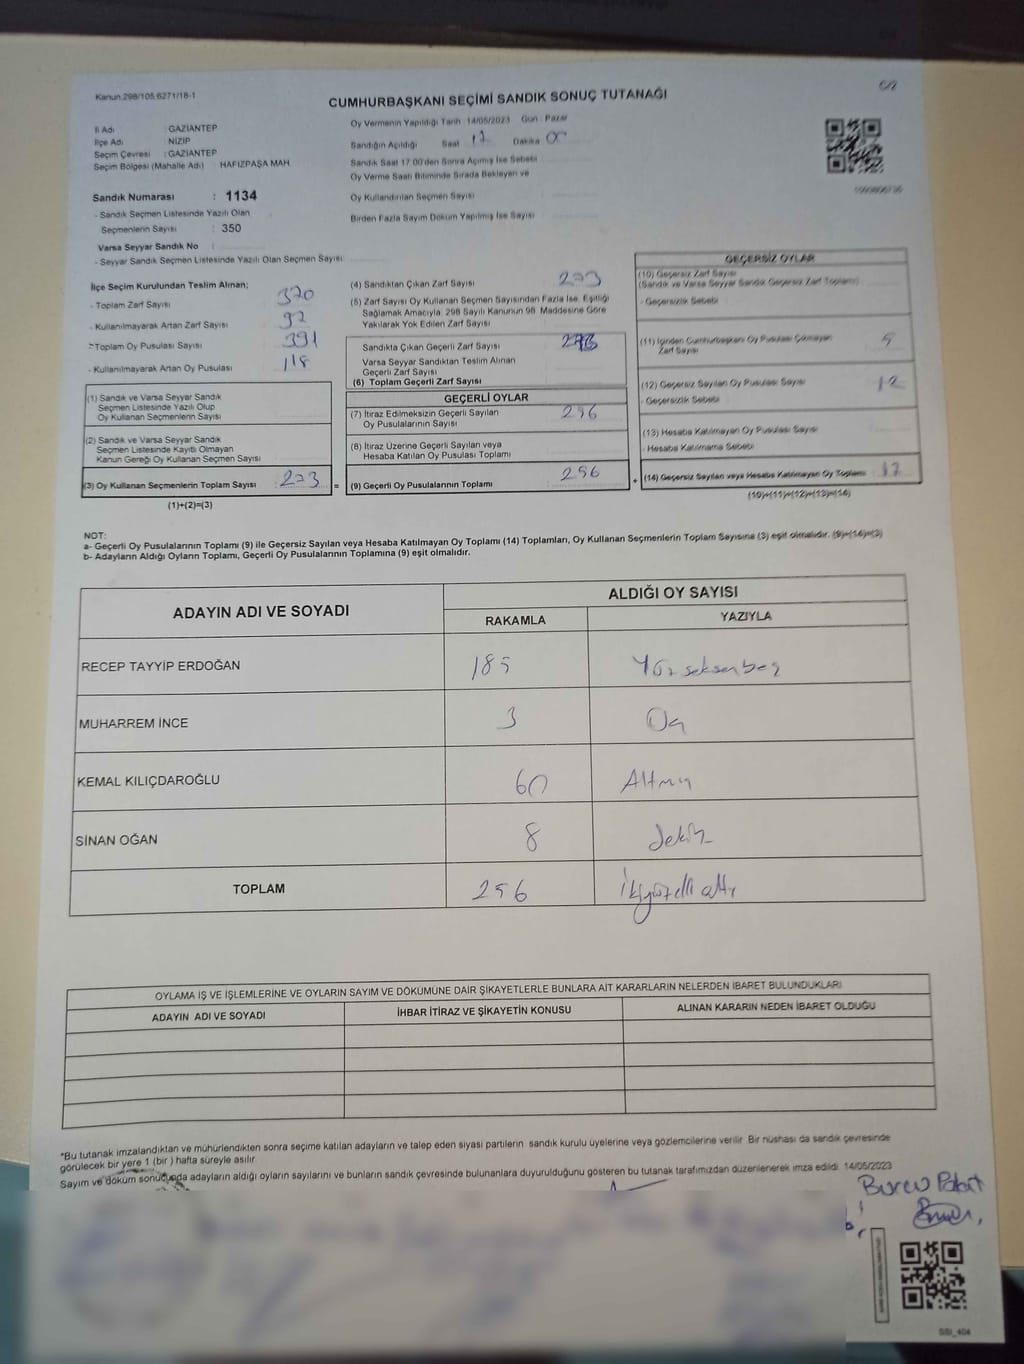 Kanun:298/105,6271/18-1
6/2
CUMHURBAŞKANI SEÇİMİ SANDIK SONUÇ TUTANAĞI
İl Adı : GAZİANTEP
İlçe Adı : NİZİP
Seçim Çevresi : GAZİANTEP
Seçim Bölgesi (Mahalle Adı) : HAFIZPAŞA MAH.
Sandık Numarası : 1134
- Sandık Seçmen Listesinde Yazılı Olan
Seçmenlerin Sayısı : 350
Varsa Seyyar Sandık No :
- Seyyar Sandık Seçmen Listesinde Yazılı Olan Seçmen Sayısı:
Oy Vermenin Yapıldığı Tarih :14/05/2023 Gün : Pazar
Sandığın Açıldığı Saat 17 Dakika 00
Sandık Saat 17.00'den Sonra Açmış İse Sebebi
Oy Verme Saati Bitiminde Sırada Bekleyen ve
Oy Kullandırılan Seçmen Sayısı
Birden Fazla Sayım Döküm Yapılmış İse Sayısı
İlçe Seçim Kurulundan Teslim Alınan;
- Toplam Zarf Sayısı 370
- Kullanılmayarak Artan Zarf Sayısı 92
- Toplam Oy Pusulası Sayısı 391
- Kullanılmayarak Artan Oy Pusulası 118
(1) Sandık ve Varsa Seyyar Sandık
Seçmen Listesinde Yazılı Olup
Oy Kullanan Seçmenlerin Sayısı
(2) Sandık ve Varsa Seyyar Sandık
Seçmen Listesinde Kayıtlı Olmayan
Kanun Gereği Oy Kullanan Seçmen Sayısı
(3) Oy Kullanan Seçmenlerin Toplam Sayısı : 273 =
(1)+(2)=(3)
(4) Sandıktan Çıkan Zarf Sayısı 273
(5) Zarf Sayısı Oy Kullanan Seçmen Sayısından Fazla İse, Eşitliği
Sağlamak Amacıyla, 298 Sayılı Kanunun 98. Maddesine Göre
Yakılarak Yok Edilen Zarf Sayısı
Sandıkta Çıkan Geçerli Zarf Sayısı 273
Varsa Seyyar Sandıktan Teslim Alınan
Geçerli Zarf Sayısı
(6) Toplam Geçerli Zarf Sayısı
GEÇERLİ OYLAR
(7) İtiraz Edilmeksizin Geçerli Sayılan
Oy Pusulasının Sayısı 256
(8) İtiraz Üzerine Geçerli Sayılan veya
Hesaba Katılan Oy Pusulası Toplamı
(9) Geçerli Oy Pusulalarının Toplamı 256 +
GEÇERSİZ OYLAR
(10) Geçersiz Zarf Sayısı
(Sandık ve Varsa Seyyar Sandık Geçersiz Zarf Toplamı)
- Geçersizlik Sebebi
(11) İçinden Cumhurbaşkanı Oy Pusulası Çıkmayan
Zarf Sayısı 5
(12) Geçersiz Sayılan Oy Pusulası Sayısı 12
- Geçersizlik Sebebi
(13) Hesaba Katılmayan Oy Pusulası Sayısı
- Hesaba Katılmama Sebebi
(14) Geçersiz Sayılan veya Hesaba Katılmayan Oy Toplamı 17
(10)+(11)+(12)+(13)=(14)
NOT:
a- Geçerli Oy Pusulalarının Toplamı (9) ile Geçersiz Sayılan veya Hesaba Katılmayan Oy Toplamı (14) Toplamları, Oy Kullanan Seçmenlerin Toplam Sayısına (3) eşit olmalıdır. (9)+(14)=(3)
b- Adayların Aldığı Oyların Toplamı, Geçerli Oy Pusulalarının Toplamına (9) eşit olmalıdır.
ADAYIN ADI VE SOYADI ALDIĞI OY SAYISI
RAKAMLA YAZIYLA
RECEP TAYYİP ERDOĞAN 185 Yüz seksen beş
MUHARREM İNCE 3 Üç
KEMAL KILIÇDAROĞLU 60 Altmış
SİNAN OĞAN 8 Sekiz
TOPLAM 256 İkiyüzelli altı
OYLAMA İŞ VE İŞLEMLERİNE VE OYLARIN SAYIM VE DÖKÜMÜNE DAİR ŞİKAYETLERLE BUNLARA AİT KARARLARIN NELERDEN İBARET BULUNDUKLARI
ADAYIN ADI VE SOYADI İHBAR İTİRAZ VE ŞİKAYETİN KONUSU ALINAN KARARIN NEDEN İBARET OLDUĞU
*Bu tutanak imzalandıktan ve mühürlendikten sonra seçime katılan adayların ve talep eden siyasi partilerin sandık kurulu üyelerine veya gözlemcilerine verilir. Bir nüshası da sandık çevresinde
görülecek bir yere 1 (bir) hafta süreyle asılır.
Sayım ve döküm sonucunda adayların aldığı oyların sayılarını ve bunların sandık çevresinde bulunanlara duyurulduğunu gösteren bu tutanak tarafımızdan düzenlenerek imza edildi. 14/05/2023
Burcu Polat
SSI_404